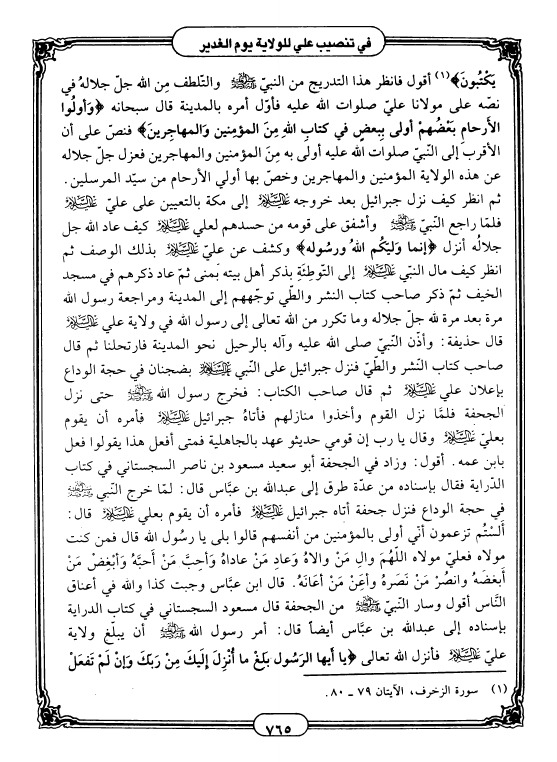 في تنصيب علي للولاية يوم الغدير
يَكْتُبونَ﴾(١) أقول فانظر هذا التدريج من النبيّ ﷺ والتلطف مِن الله جلّ جلالهُ في
نصّه على مولانا عليّ صلوات الله عليه فأوّل أمره بالمدينة قال سبحانه ﴿وَأولُوا
الأرحامِ بَعْضُهمْ أولى بِبعضٍ في كتابِ اللهِ مِنَ المؤمنين وَالمهاجِرينَ﴾ فنصّ على أن
الأقرب إلى النّبيّ صلوات الله عليه أولى به مِنَ المؤمنين والمهاجرين فعزل جلّ جلاله
عن هذه الولاية المؤمنين والمهاجرين وخصّ بها أولي الأرحام من سيّد المرسلين.
ثم انظر كيف نزل جبرائيل بعد خروجه عَلَيْهِ السَّلَام إلى مكة بالتعيين على عليّ عَلَيْهِ السَّلَام
فلمّا راجع النبيّ ﷺ وأشفق على قومه من حسدهم لعلي عَلَيْهِ السَّلَام كيف عاد الله جل
جلالُه أنزل ﴿إنما وَليّكُم اللهُ ورسوله﴾ وكشف عن عليّ عَلَيْهِ السَّلَام بذلك الوصف ثم
انظر كيف مال النبّي عَلَيْهِ السَّلَام إلى التّوطِئَةِ بذكر أهل بيته بَمنى ثمّ عاد ذكرهم في مسجد
الخيف ثمّ ذكر صاحب كتاب النشر والطّي توجّههم إلى المدينة ومراجعة رسول الله
مرة بعد مرة لله جلّ جلاله وما تكرر من الله تعالى إلى رسول الله في ولاية علي عَلَيْهِ السَّلَام
قال حذيفة: وأذّن النّبيّ صلى الله عليه وآله بالرحيل نحو المدينة فارتحلنا ثم قال
صاحب كتاب النّشر والطّيّ فنزل جبرائيل على النبي عَلَيْهِ السَّلَام بضجنان في حجة الوداع
بإعلان علي عَلَيْهِ السَّلَام ثم قال صاحب الكتاب: فخرج رسول الله ﷺ حتى نزل
الجحفة فلمَّا نزل القوم وأخذوا منازلهم فأتاهُ جبرائيل عَلَيْهِ السَّلَام فأمره أن يقوم
بعليّ عَلَيْهِ السَّلَام وقال يا رب إن قومي حديثو عهد بالجاهلية فمتى أفعل هذا يقولوا فعل
بابن عمه. أقول: وزاد في الجحفة أبو سعيد مسعود بن ناصر السجستاني في كتاب
الدّراية فقال بإسناده من عدّة طرق إلى عبدالله بن عبّاس قال: لمّا خرج النّبي ﷺ
في حجة الوداع فنزل جحفة أتاه جبرائيل عَلَيْهِ السَّلَام فأمره أن يقوم بعلي عَلَيْهِ السَّلَام قال:
ألسْتُم تزعمون أنّي أولى بالمؤمنين من أنفسهم قالوا بلى يا رسُول الله قال فمن كنت
مولاه فعليّ مولاه اللّهُم وال مَنْ والاهُ وَعادِ مَنْ عاداهُ وأحِبَّ مَنْ أحبَّهُ وَأبْغِضْ مَنْ
أبغضَهُ وانصُرْ مَنْ نَصَرهُ وأعِنْ مَنْ أعَانَهُ. قال ابن عبّاس وجبت كذا والله في أعناق
النَّاس أقول وسار النّبيّ ﷺ من الجحفة قال مسعود السجستاني في كتاب الدراية
بإسناده إلى عبدالله بن عبّاس أيضاً قال: أمر رسول الله ﷺ أن يبلّغ ولاية
عليّ عَلَيْهِ السَّلَام فأنزل الله تعالى ﴿يا أيها الرَسول بَلغْ ما أُنْزِلَ إليكَ مِنْ رَبكَ وَإنْ لَمْ تَفعَلْ
(١) سورة الزخرف، الآيتان ٧٩ ـ ٨٠.
٧٦٥